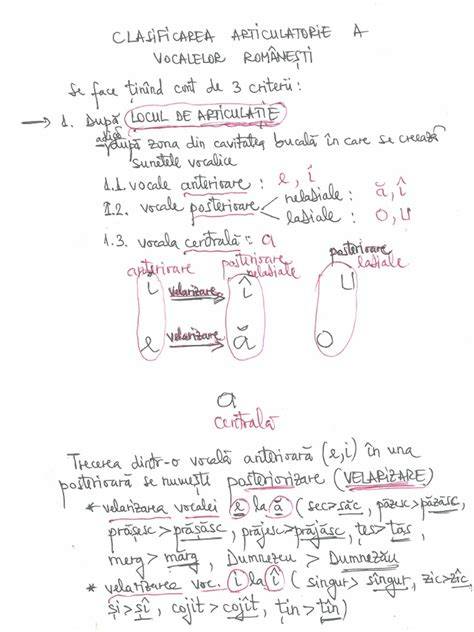 CLASIFICAREA ARTICULATORIE A
VOCALELOR ROMÂNEȘTI
Se face ținînd cont de 3 criterii:
→ 1. După LOCUL DE ARTICULAȚIE
adică
după zona din cavitatea bucală în care se creează
sunetele vocalice
1.1. vocale anterioare : e, i
1.2. vocale posterioare < nelabiale : ă, î
labiale : o, u
1.3. vocala centrală : a
anterioare posterioare nelabiale posterioare labiale
i velarizare î u
e velarizare ă o
a
centrală
Trecerea dintr-o vocală anterioară (e, i) în una
posterioară se numești posteriorizare (VELARIZARE)
* velarizarea vocalei e la ă (sec>săc, păzesc>păzăsc,
prășesc>prășăsc, prăjesc>prăjăsc, țes>țăs,
merg>mărg, Dumnezeu>Dumnezău
* velarizarea voc. i la î (singur>sîngur, zic>zîc,
și>șî, cojit>cojît, țin>țîn)